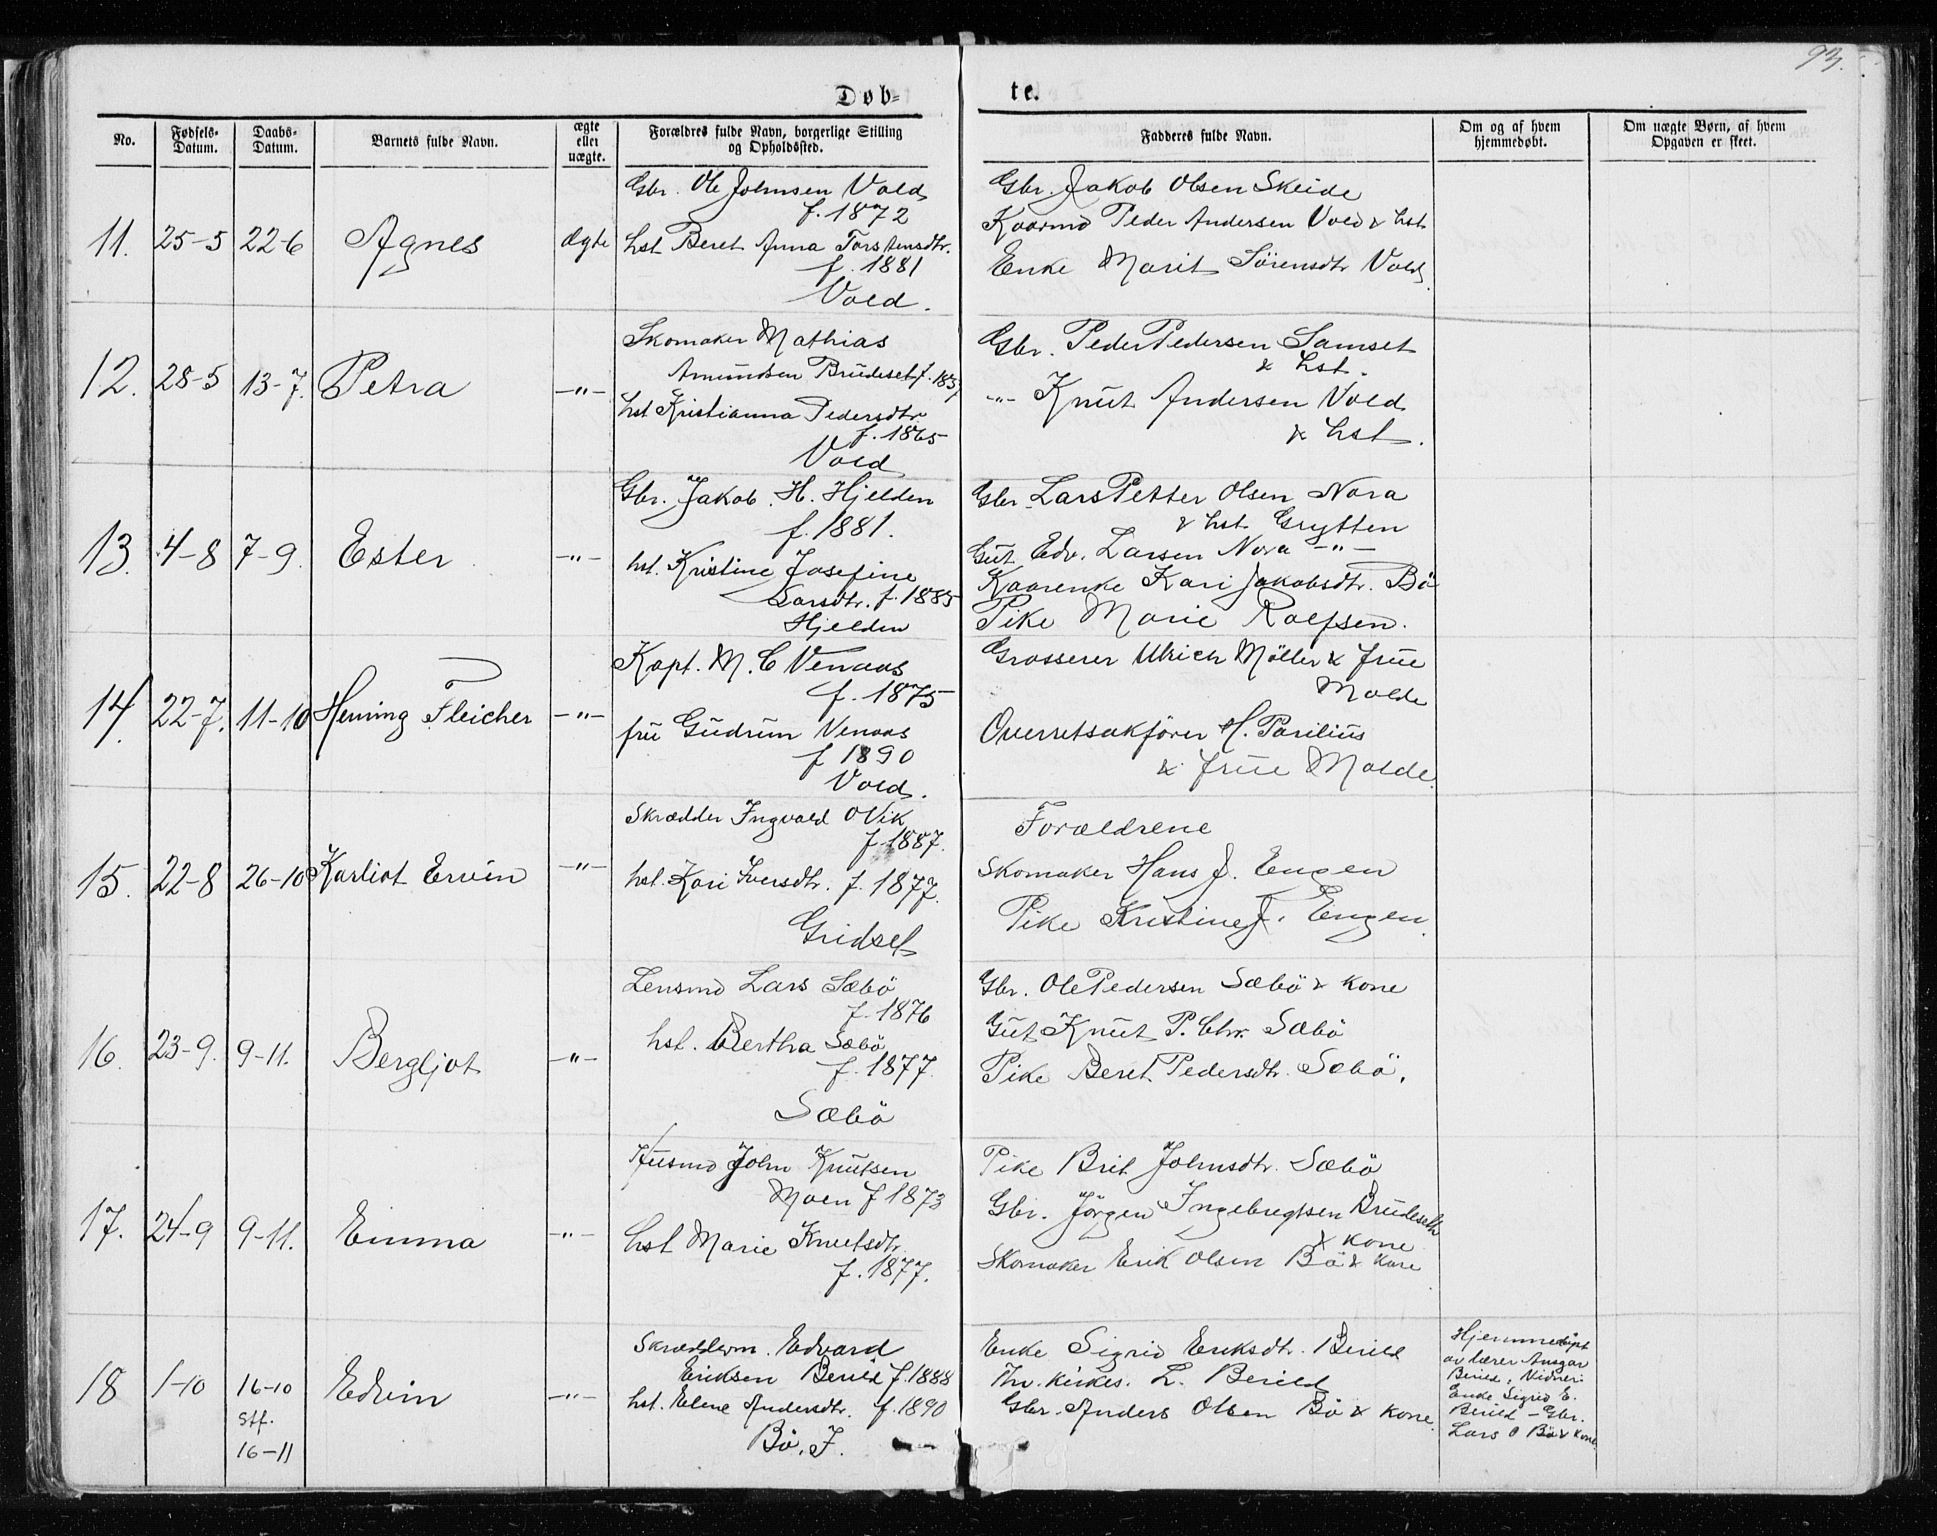 93.
Døb-
te.
No.
Fødsels-
Datum.
Daabs-
Datum.
Barnets fulde Navn.
ægte
eller
uægte.
Forældres fulde Navn, borgerlige Stilling
og Opholdssted.
Fadderes fulde Navn.
Om og af hvem
hjemmedøbt.
Om uægte Børn, af hvem
Opgaven er skeet.
11. 25-5 22-6 Agnes ægte
Gbr. Ole Johnsen Vold
f. 1872
hst Beret Anna Torstensdtr.
f. 1881
Vold.
Gbr. Jakob Olsen Skeide
Kaarmd Peder Andersen Vold & hst
Enke Marit Sörensdtr Vold.
12. 28-5 13-7. Petra -"-
Skomaker Mathias
Amundsen Brudeset f. 1857
hst Kristianna Pedersdtr
f. 1865
Vold
Gbr. Peder Pedersen Samset
& hst.
-"- Knut Andersen Vold
& hst.
13. 4-8 7-9. Ester -"-
Gbr. Jakob H. Hjelden
f. 1881.
hst. Kristine Josefine
Larsdtr. f. 1885
Hjelden
Gbr. Lars Petter Olsen Nora
& hst. Grytten
Gut Edv. Larsen Nora -"-
Kaarenke Kari Jakobsdtr. Bö
Pike Marie Rolfsen.
14. 22-7. 11-10 Henning Fleicher -"-
Kapt. M. C Venaas
f. 1875
fru Gudrun Venaas
f 1890
Vold.
Grosserer Ulrich Möller & frue
Molde
Overretsakförer H. Parilius
& frue Molde.
15. 22-8 26-10 Karliot Ervin -"-
Skrædder Ingvald OVik
f. 1887.
hst. Kari Iversdtr. f. 1877.
Gridset
Forældrene
Skomaker Hans J. Engen
Pike Kristine J. Engen.
16. 23-9. 9-11. Bergljot -"-
Lensmd Lars Sæbö
f. 1876
hst. Bertha Sæbö
f. 1877.
Sæbö
Gbr. Ole Pedersen Sæbö & kone
Gut Knut P. Chr. Sæbö
Pike Beret Pedersdtr. Sæbö.
17. 24-9 9-11. Emma -"-
Husmd John Knutsen
Moen f 1873
hst Marie Knutsdtr.
f. 1877.
Pike Brit Johnsdtr. Sæbö
Gbr. Jörgen Ingebrigtsen Brudeseth
& kone
Skomaker Erik Olsen Bö & kone
18 1-10 16-10 Edvin -"-
stf.
16-11
Skræddern. Edvard
Eriksen Berild f. 1888
hst. Elene Andersdtr. f. 1890
Bö, I.
Enke Sigrid Eriksdtr. Berild
Fhv. kirkes. L. Berild
Gbr. Anders Olsen Bö & kone.
Hjemmedöpt
av lærer Ansgar
Berild, Vidner:
Enke Sigrid E.
Berild - Gbr.
Lars O Bö & kone.